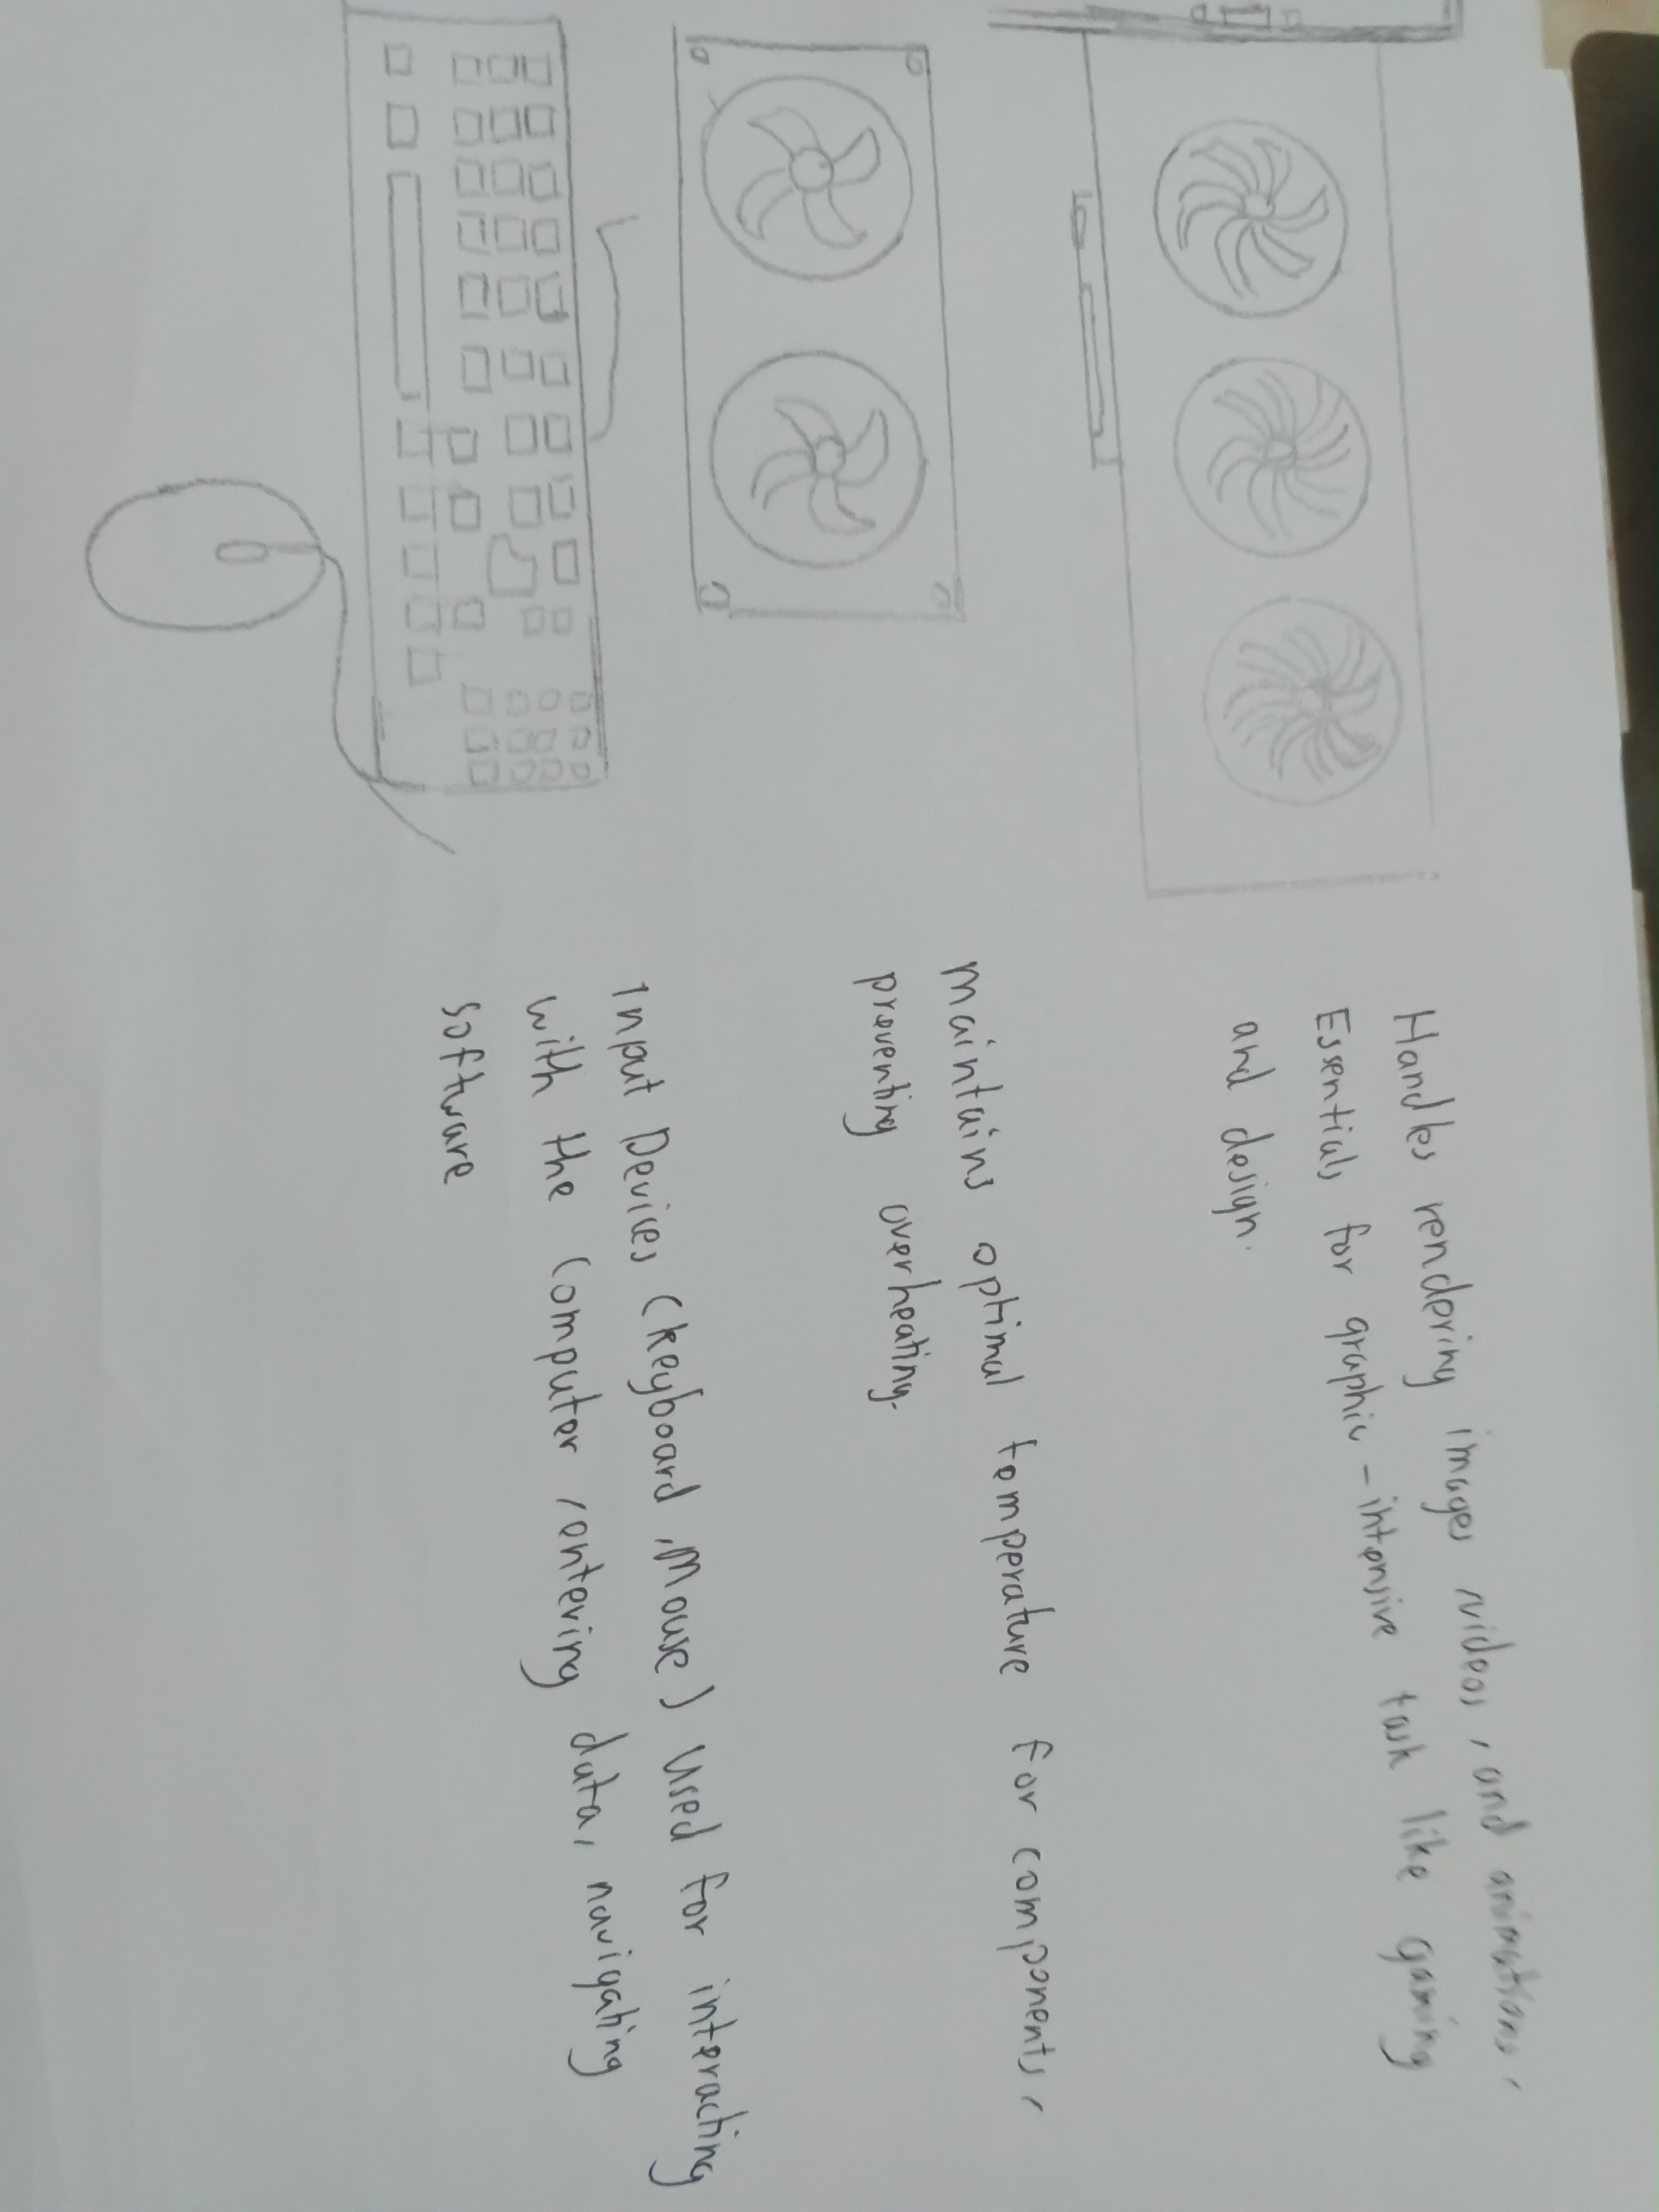 Handles rendering images, videos, and animations.
Essentials for graphic-intensive task like gaming
and design.
maintains optimal temperature for components,
preventing overheating.
Input Devices (keyboard, Mouse) Used for interacting
with the Computer, entering data, navigating
software